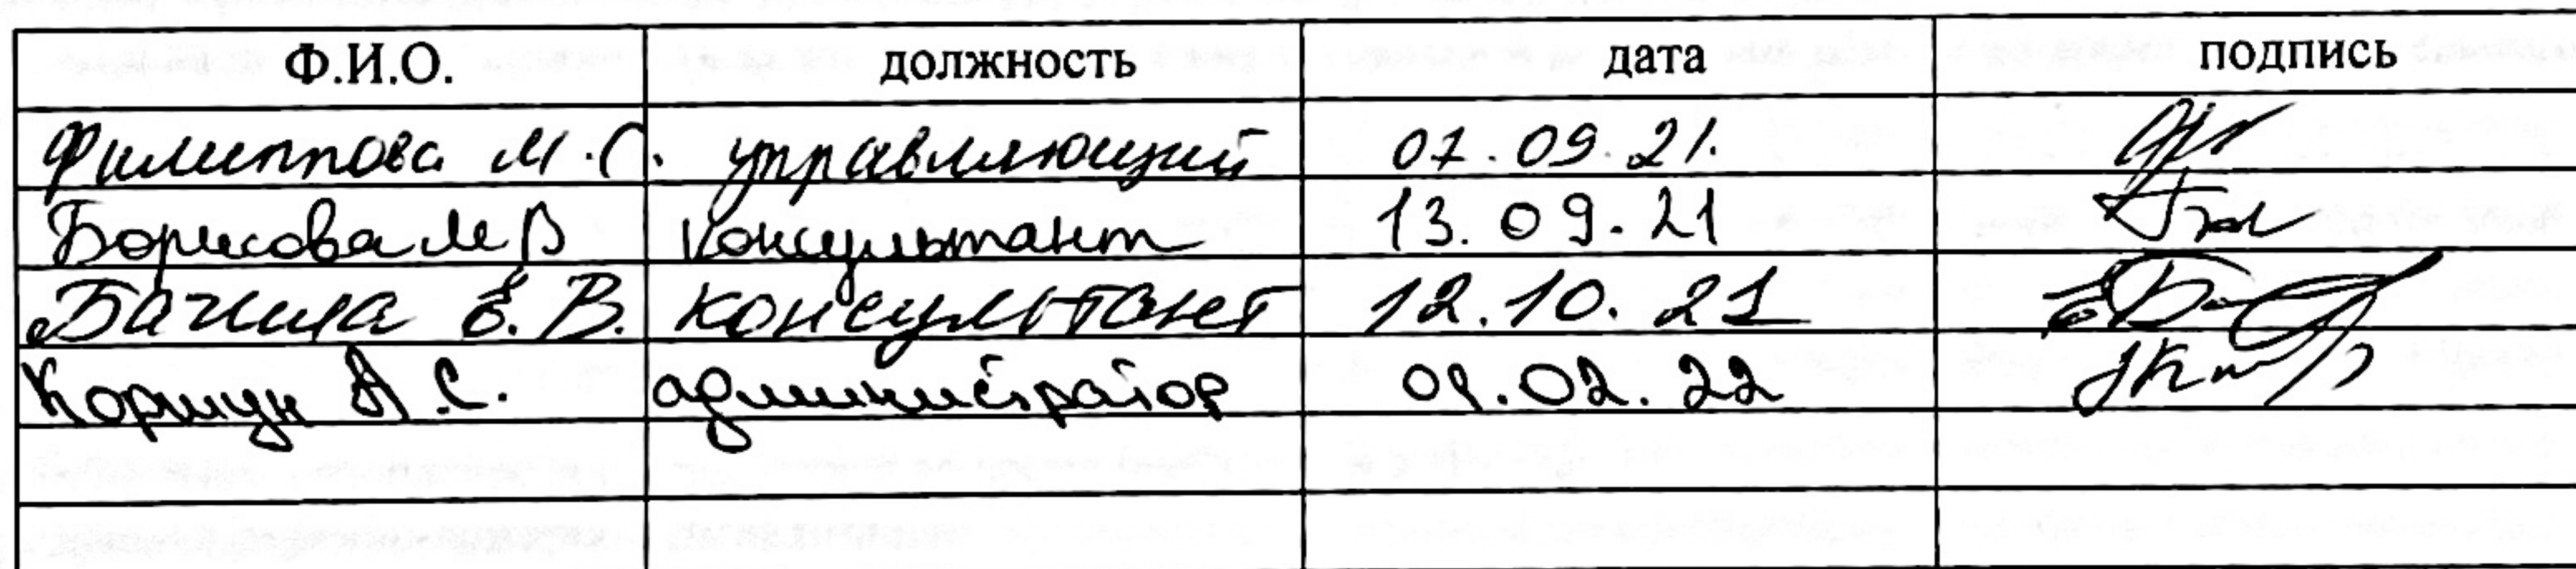 Ф.И.О. должность дата подпись
Филиппова М.С. управляющий 07.09.21.
Борисова М В Консультант 13.09.21
Е.В. консультант 12.10.21
Коршун А.С. администратор 02.22